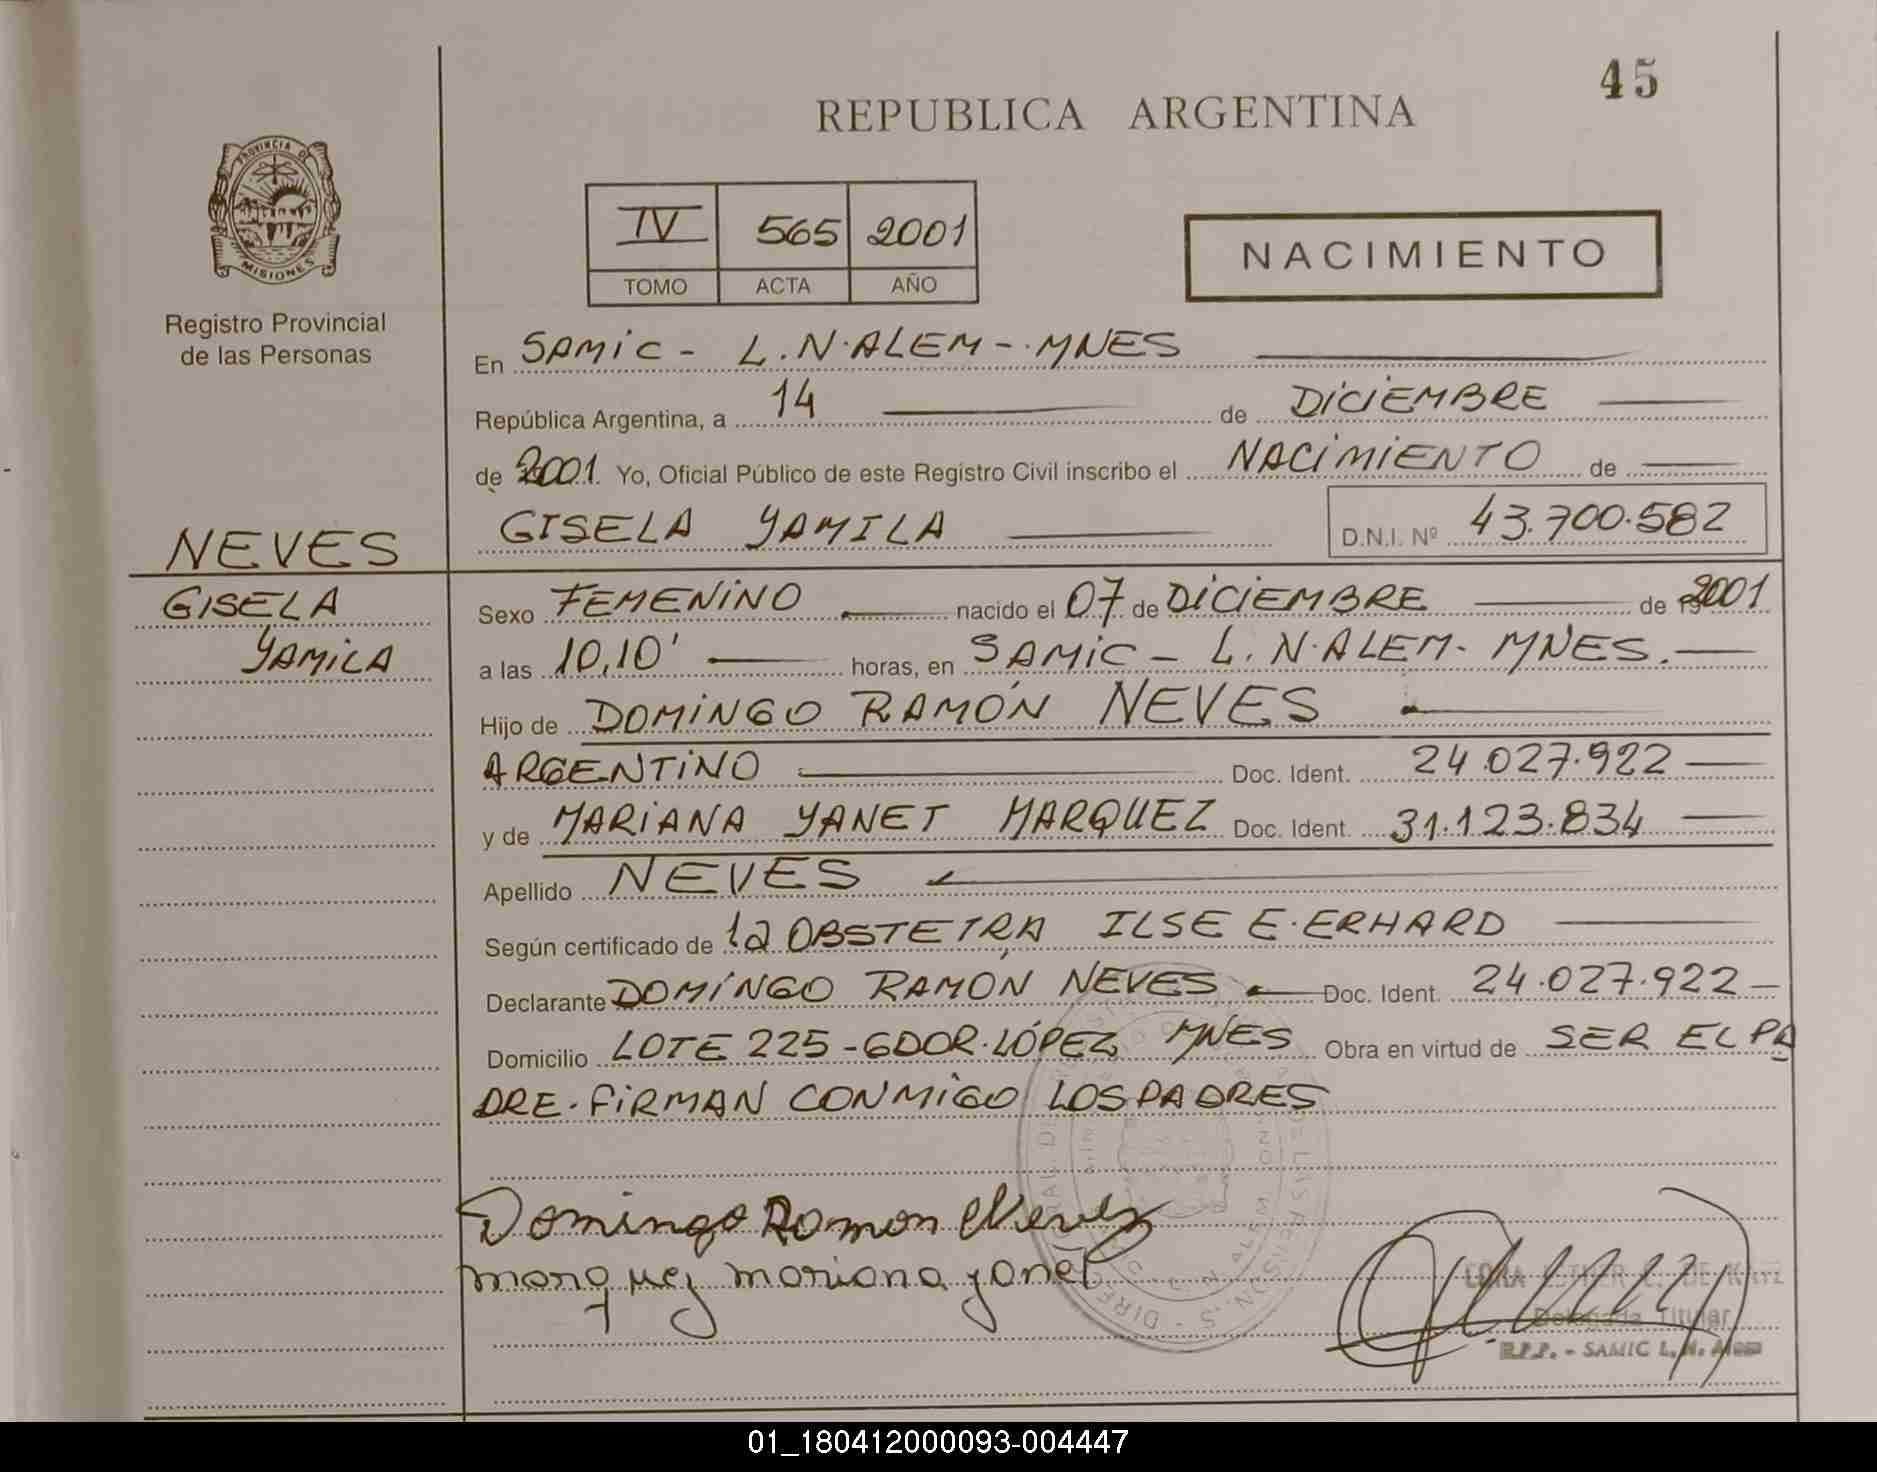 45
REPUBLICA ARGENTINA
PROVINCIA DE
MISIONES
Registro Provincial
de las Personas
IV 565 2001
TOMO ACTA AÑO
NACIMIENTO
En SAMIC - L.N.ALEM - MNES
República Argentina, a 14 de DICIEMBRE
de 2001 Yo, Oficial Público de este Registro Civil inscribo el NACIMIENTO de
GISELA YAMILA D.N.I. Nº 43.700.582
NEVES
GISELA
YAMILA
Sexo FEMENINO nacido el 07 de DICIEMBRE de 2001
a las 10,10' horas, en SAMIC - L. N. ALEM - MNES.
Hijo de DOMINGO RAMÓN NEVES
ARGENTINO Doc. Ident. 24.027.922
y de MARIANA YANET MARQUEZ Doc. Ident. 31.123.834
Apellido NEVES
Según certificado de la OBSTETRA ILSE E. ERHARD
Declarante DOMINGO RAMÓN NEVES Doc. Ident. 24.027.922
Domicilio LOTE 225 - GDOR. LÓPEZ MNES Obra en virtud de SER EL PA
DRE. FIRMAN CONMIGO LOS PADRES
Domingo Ramon Neves
Marquez mariana yanet
Delegada Titular
R.P.P. - SAMIC L. N. Alem
01_180412000093-004447